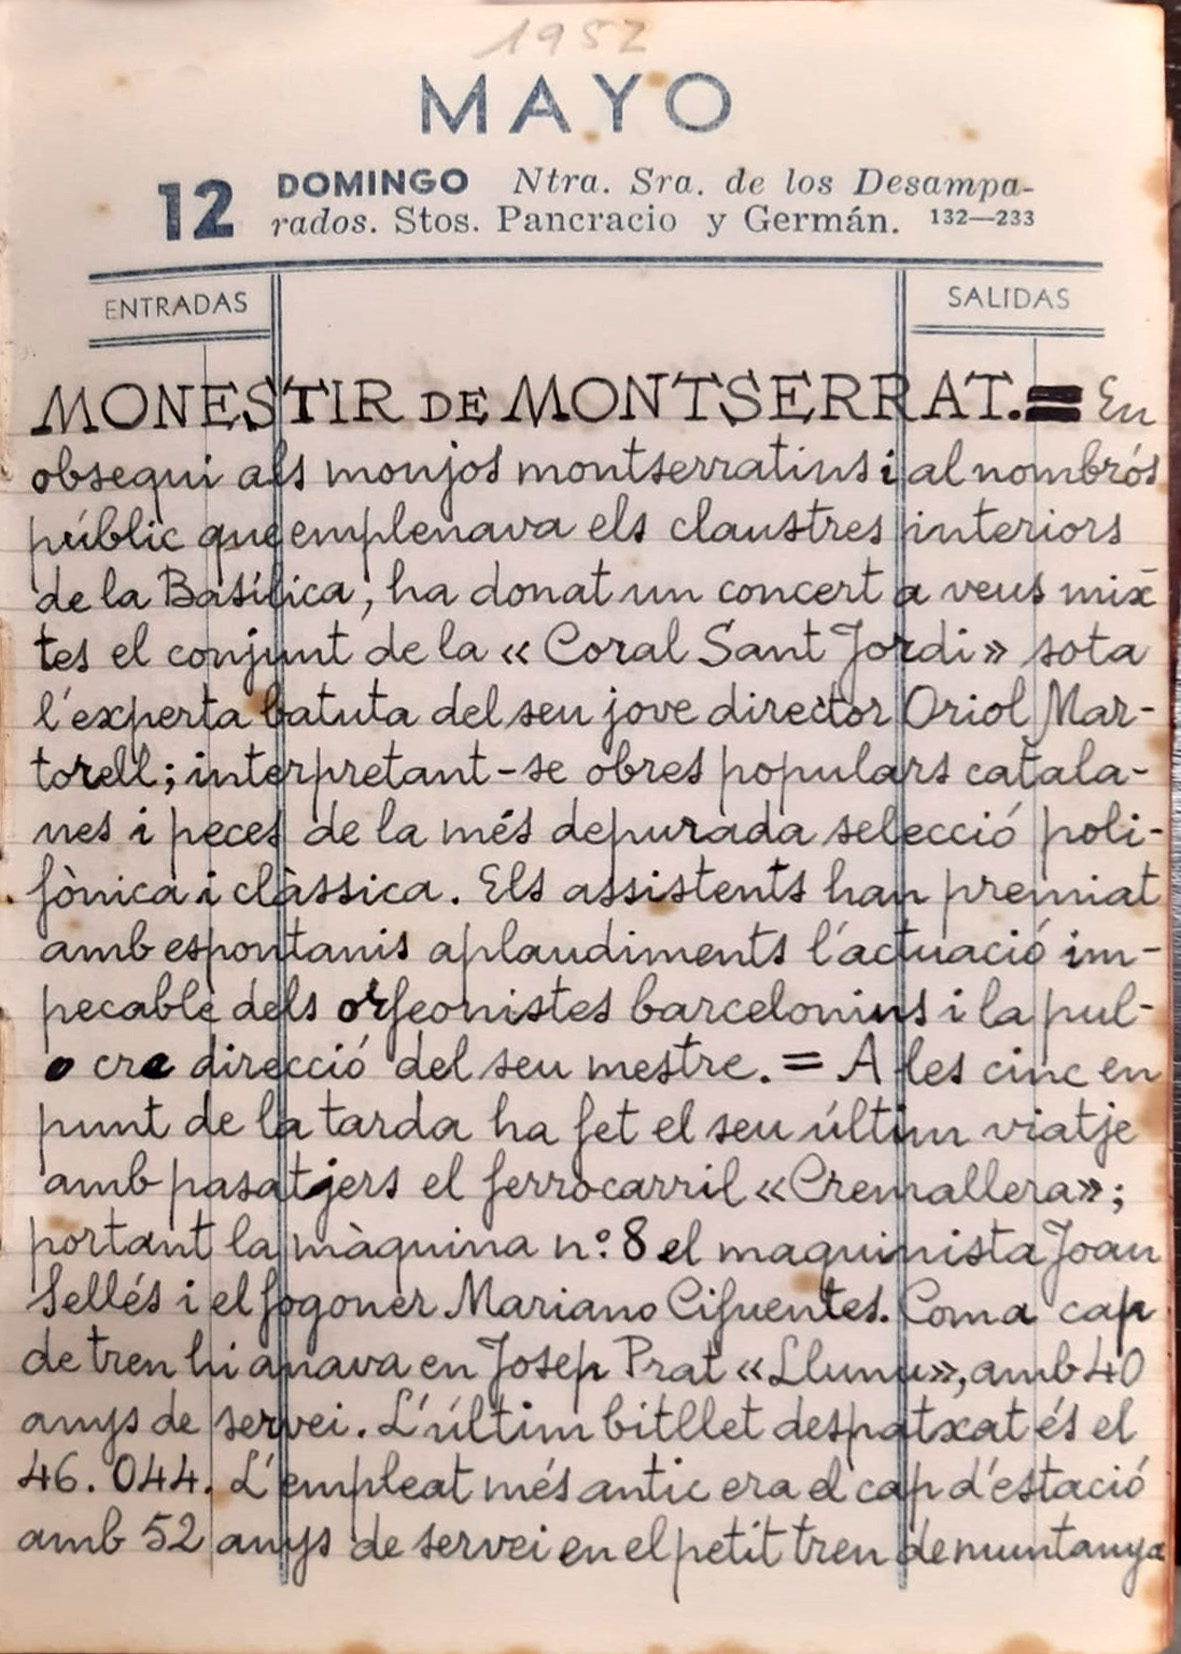 1957
MAYO
12 DOMINGO Ntra. Sra. de los Desampa-
rados. Stos. Pancracio y Germán. 132—233
ENTRADAS SALIDAS
MONESTIR DE MONTSERRAT.= En
obsequi als monjos montserratins i al nombrós
públic que emplenava els claustres interiors
de la Basílica, ha donat un concert a veus mix
tes el conjunt de la «Coral Sant Jordi» sota
l'experta batuta del seu jove director Oriol Mar-
torell; interpretant-se obres populars catala-
nes i peces de la més depurada selecció poli-
fònica i clàssica. Els assistents han premiat
amb espontanis aplaudiments l'actuació im-
pecable dels orfeonistes barcelonins i la pul-
cra direcció del seu mestre. = A les cinc en
punt de la tarda ha fet el seu últim viatje
amb pasatjers el ferrocarril «Cremallera»;
portant la màquina nº 8 el maquinista Joan
Sellés i el fogoner Mariano Cifuentes. Com a cap
de tren hi anava en Josep Prat «Llunu», amb 40
anys de servei. L'últim bitllet despatxat és el
46.044. L'empleat més antic era el cap d'estació
amb 52 anys de servei en el petit tren de muntanya